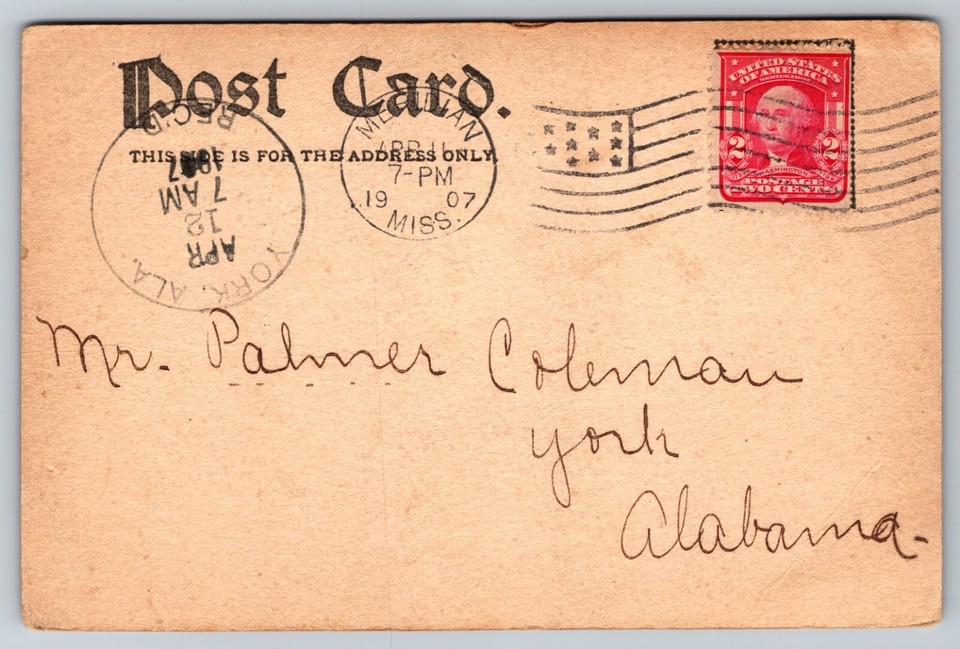 Post Card.
THIS SIDE IS FOR THE ADDRESS ONLY.
MERIDIAN
APR 11
7-PM
1907
MISS.
REC'D.
1907
7 AM
12
APR
YORK, ALA.
UNITED STATES
OF AMERICA
SERIES 1902
2 2
WASHINGTON
POSTAGE
TWO CENTS
Mr. Palmer Coleman
York
Alabama.